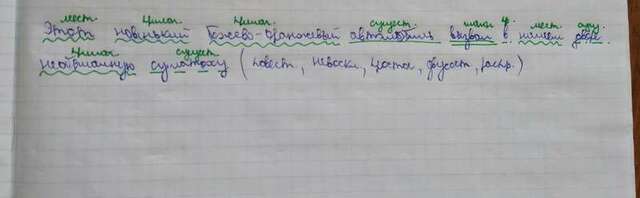 мест. прилаг. прилаг. сущест. глаг. мест. сущ.
Этот новенький бежево-оранжевый автомобиль вызвал в нашем дворе
прилаг. сущест.
суматоху (повест., невоскл., прост., двусост., распр.)